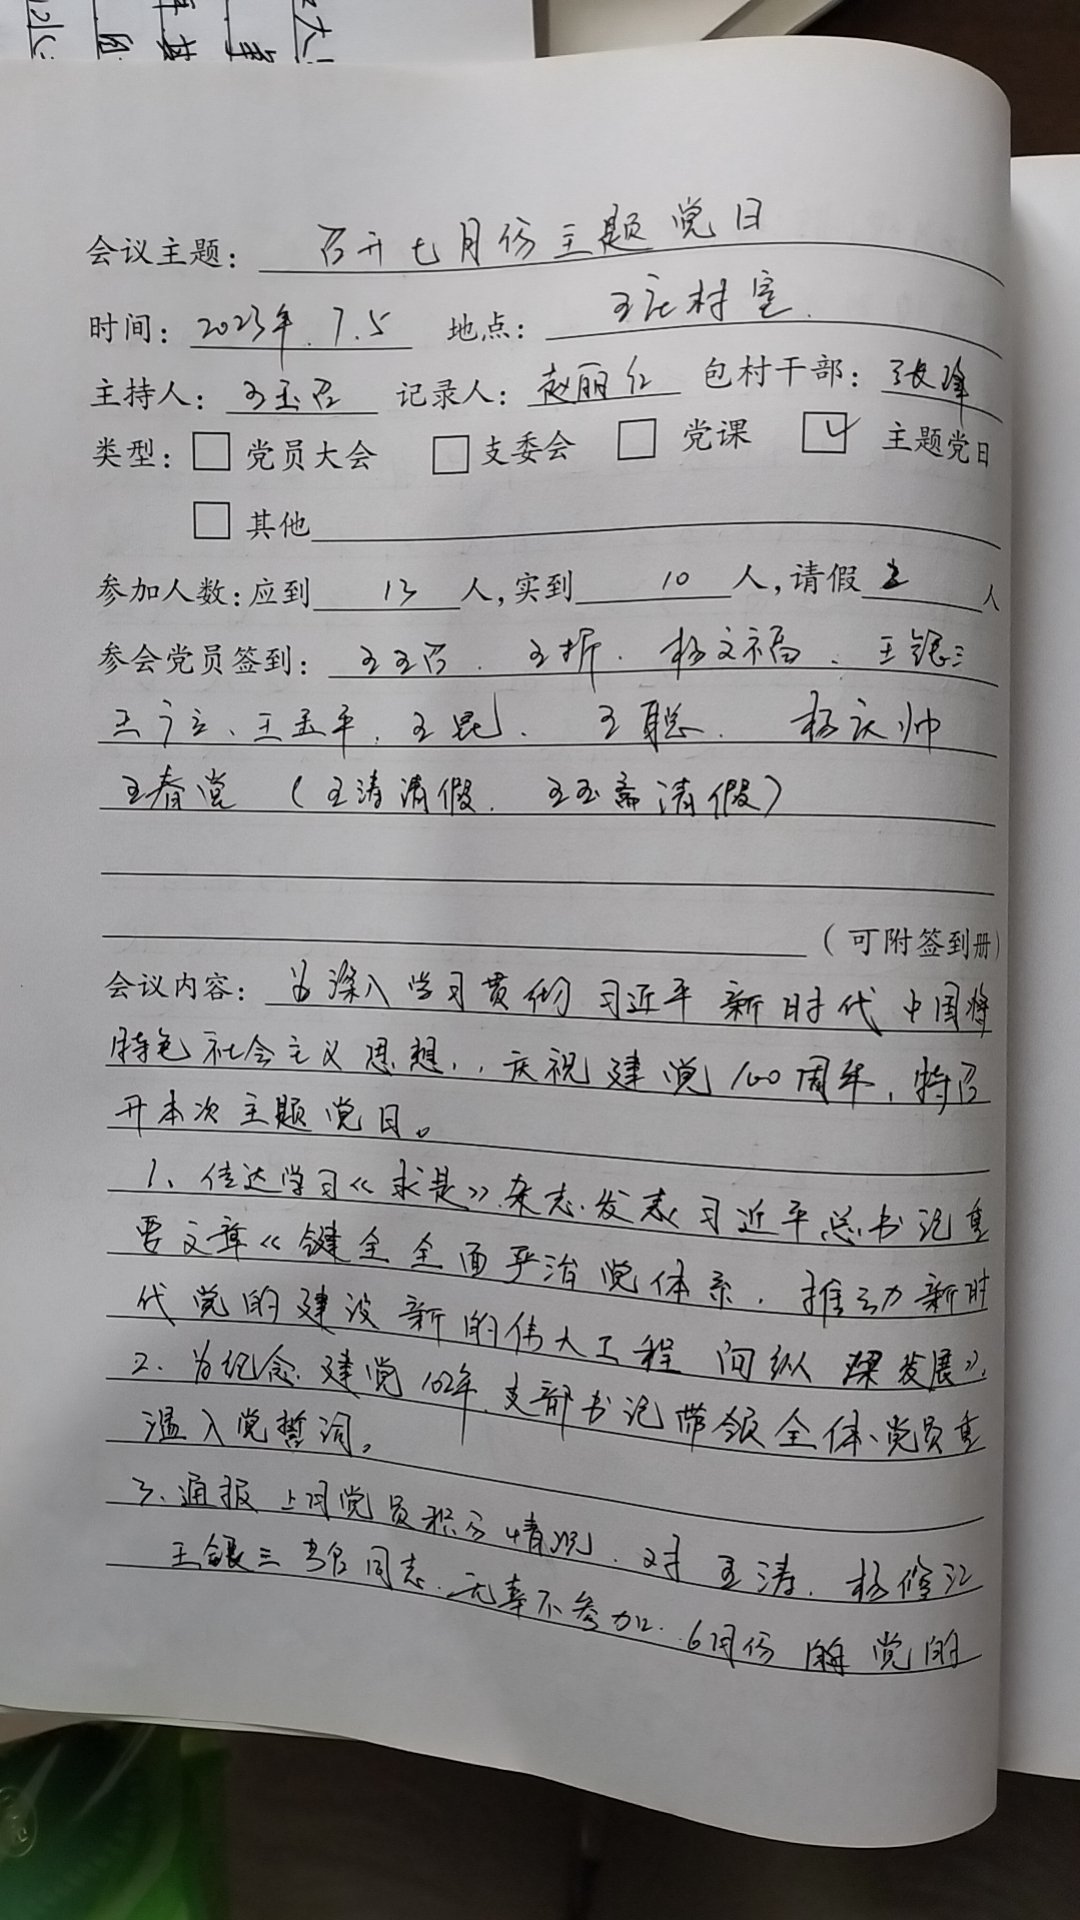 会议主题: 召开七月份主题党日
时间: 2023年.7.5 地点: 王庄村室.
主持人: 王玉召 记录人: 赵丽红 包村干部: 张峰
类型: 党员大会 支委会 党课 主题党日
其他
参加人数:应到 13 人,实到 10 人,请假 2 人
参会党员签到: 王玉召. 王折. 杨文福. 王银三
王广立、王玉平. 王昆. 王聪. 杨庆帅
王春党 (王涛请假. 王玉斋请假)
(可附签到册)
会议内容: 为深入学习贯彻习近平新时代中国
特色社会主义思想,庆祝建党100周年,特召
开本次主题党日。
1、传达学习《求是》杂志.发表习近平总书记重
要文章《健全全面严治党体系.推动新时
代党的建设新的伟大工程 向纵深发展》.
2.为纪念.建党102年.支部书记带领全体、党员重
温入党誓词。
3.通报上月党员积分情况.对王涛.杨修江
王银三 同志.无辜不参加.6月份 党的